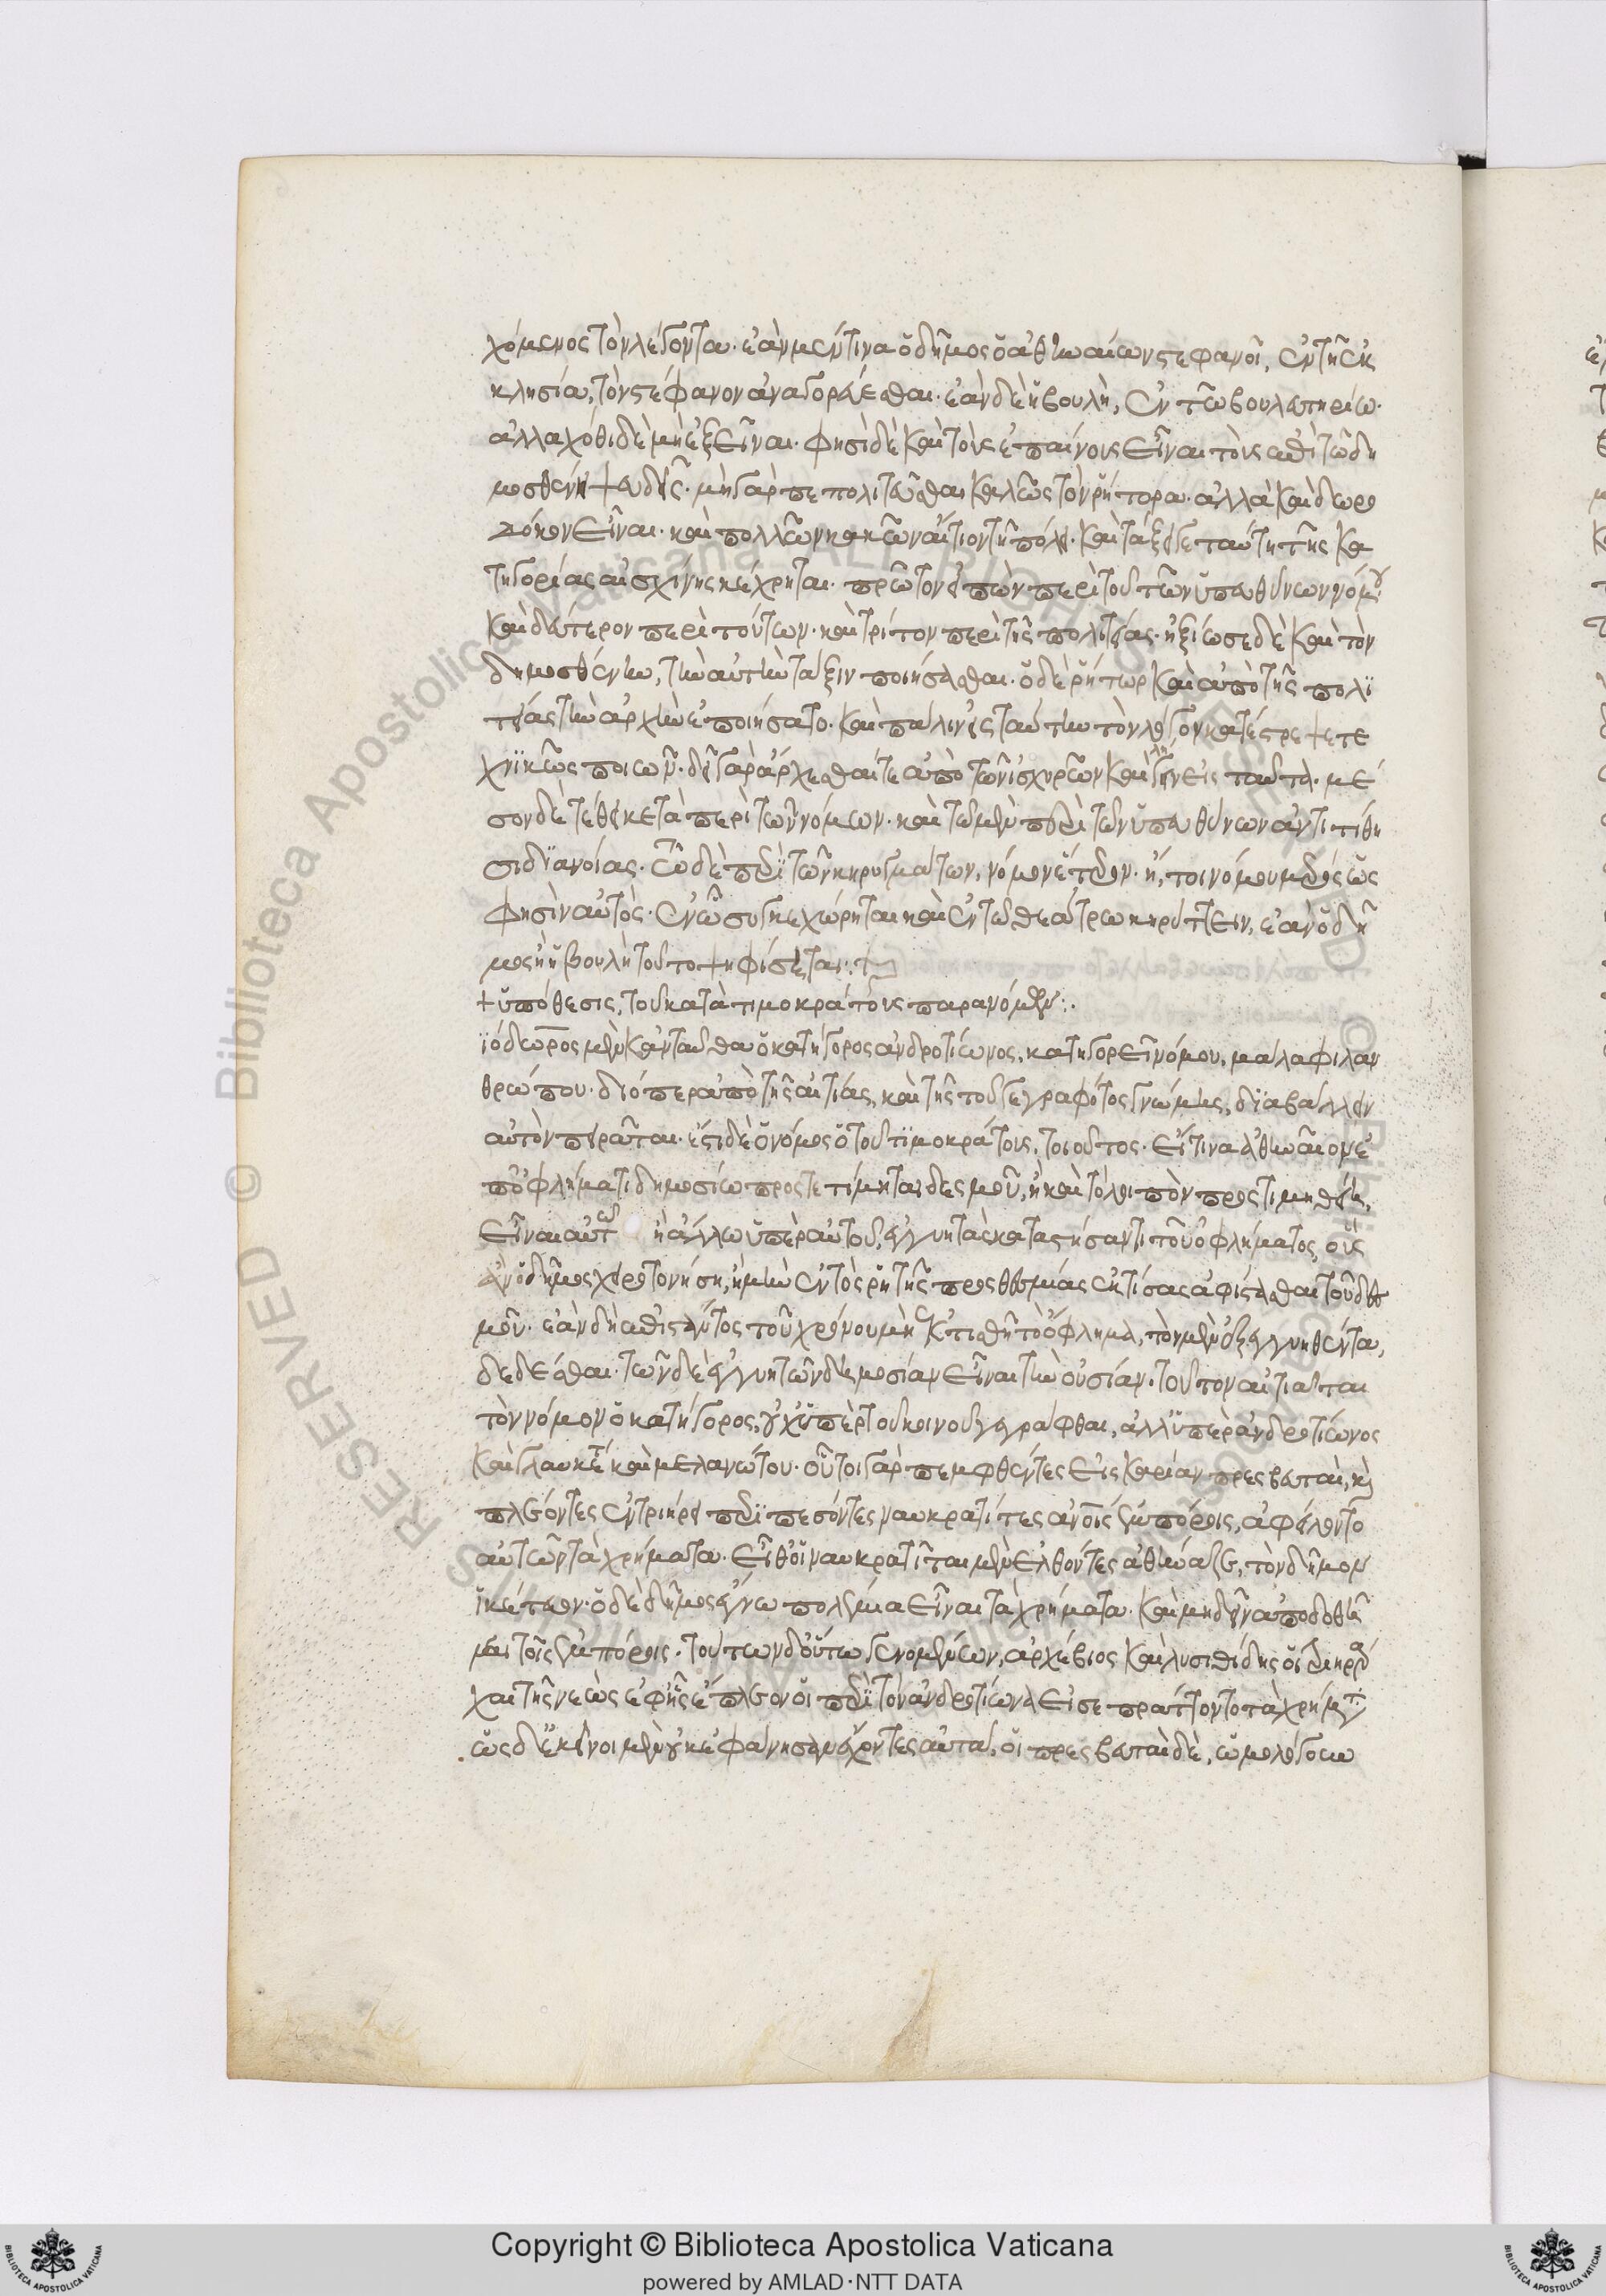 χόμενος τὸν λέγοντα· ἐὰν μέν τινα ὁ δῆμος ὁ ἀθηναίων στεφανοῖ, ἐν τῆ ἐκ
κλησία, τὸν στέφανον ἀναγορεύεσθαι· ἐὰν δὲ ἡ βουλὴ, ἐν τῶ βουλευτηρίω·
ἀλλαχόθι δὲ μὴ ἐξεῖναι· φησὶ δὲ καὶ τοὺς ἐπαίνους εἶναι τοὺς ἐπὶ τῶ δη
μοσθένει ψευδεῖς· μὴ γὰρ πεπολιτεῦσθαι καλῶς τὸν ῥήτορα· ἀλλὰ καὶ δωρο
δόκον εἶναι· καὶ πολλῶν κακῶν αἴτιον τῆ πόλει· καὶ τάξει γε ταύτη τῆς κα
τηγορίας αἰσχίνης κέχρηται· πρῶτον εἰπὼν περὶ τοῦ τῶν ὑπευθύνων νόμου
καὶ δεύτερον περὶ τούτων· καὶ τρίτον περὶ τῆς πολιτείας· ἠξίωσε δὲ καὶ τὸν
δημοσθένην, τὴν αὐτὴν τάξιν ποιήσασθαι· ὁ δὲ ῥήτωρ καὶ ἀπὸ τῆς πολϊ
τείας τὴν ἀρχὴν ἐποιήσατο· καὶ πάλιν εἰς ταύτην τὸν λόγον κατέστρεψε τε
χνϊκῶς ποιῶν· δεῖ γὰρ ἄρχεσθαί τε ἀπὸ τῶν ἰσχυρῶν καὶ λήγειν εἰς ταῦτα· μέ
σον δὲ τέθεικε τὰ περὶ τῶν νόμων· καὶ τῶ μὲν περὶ τῶν ὑπευθύνων ἀντιτίθη
σι δϊανοίας· τῶ δὲ περὶ τῶν κηρυγμάτων, νόμον ἕτερον· ἤτοι νόμου μέρος ὥς
φησὶν αὐτὸς· ἐν ᾧ συγκεχώρηται καὶ ἐν τῶ θεάτρω κηρύττειν, ἐὰν ὁ δῆ
μος ἢ ἡ βουλὴ τοῦτο ψηφίσηται:
+ ὑπόθεσις, τοῦ κατὰ τιμοκράτους παρανόμων:·
ϊόδωρος μὲν κἀνταῦθα ὁ κατήγορος ἀνδροτίωνος, κατηγορεῖ νόμου, μάλα φιλαν
θρώπου· διόπερ ἀπὸ τῆς αἰτίας, καὶ τῆς τοῦ γεγραφότος γνώμης, δϊαβάλλειν
αὐτὸν πειρᾶται· ἔστι δὲ ὁ νόμος ὁ τοῦ τϊμοκράτους, τοιοῦτος· εἴ τινα ἀθηναίων ἐ
π' ὀφλήματι δημοσίω προστετίμηται δεσμοῦ, ἢ καὶ τὸ λοιπὸν προστιμηθείη,
εἶναι αὐτῶ ἢ ἄλλω ὑπὲρ αὐτοῦ, ἐγγυητὰς καταστήσαντι τοῦ ὀφλήματος, οὓς
ἂν ὁ δῆμος χειροτονήση, ἦ μὴν ἐντὸς ῥητῆς προσθεσμίας ἐκτίσας ἀφίσασθαι τοῦ δε
μοῦ· ἐὰν δὴ ἐπιστάντος τοῦ χρόνου μὴ ἐκτιθῆ τὸ ὄφλημα, τὸν μὲν ἐξεγγυηθέντα,
δεδέσθαι· τῶν δὲ ἐγγυητῶν δημοσίαν εἶναι τὴν οὐσίαν· τοῦτον αἰτιᾶται
τὸν νόμον ὁ κατήγορος, οὐχ ὑπὲρ τοῦ κοινοῦ γεγράφθαι, ἀλλ' ὑπὲρ ἀνδροτίωνος
καὶ γλαυκέτου καὶ μελανώπου· οὗτοι γὰρ πεμφθέντες εἰς καρίαν πρεσβευταὶ, καὶ
πλέοντες ἐν τριήρει περϊπεσόντες ναυκρατίταις ἀνθρώποις ἐμπόροις, ἀφείλοντο
αὐτῶν τὰ χρήματα· εἶθ' οἱ ναυκρατῖται μὲν ἐλθόντες ἀθήναζε, τὸν δῆμον
ἱκέτευον· ὁ δὲ δῆμος ἔγνω πολέμια εἶναι τὰ χρήματα· καὶ μὴ δεῖν ἀποδοθῆ
ναι τοῖς ἐμπόροις· τούτων δ' οὕτω γενομένων, ἀρχέβιος καὶ λυσιθείδης οἱ τριήραρ
χαι τῆς νεὼς ἐφ' ἧς ἔπλεον οἱ περὶ τὸν ἀνδροτίωνα εἰσεπράττοντο τὰ χρήματα·
ὡς δ' ἐκεῖνοι μὲν οὐκ ἐφάνησαν ἔχοντες αὐτὰ, οἱ πρεσβευταὶ δὲ, ὡμολόγουν
Copyright © Biblioteca Apostolica Vaticana
powered by AMLAD·NTT DATA